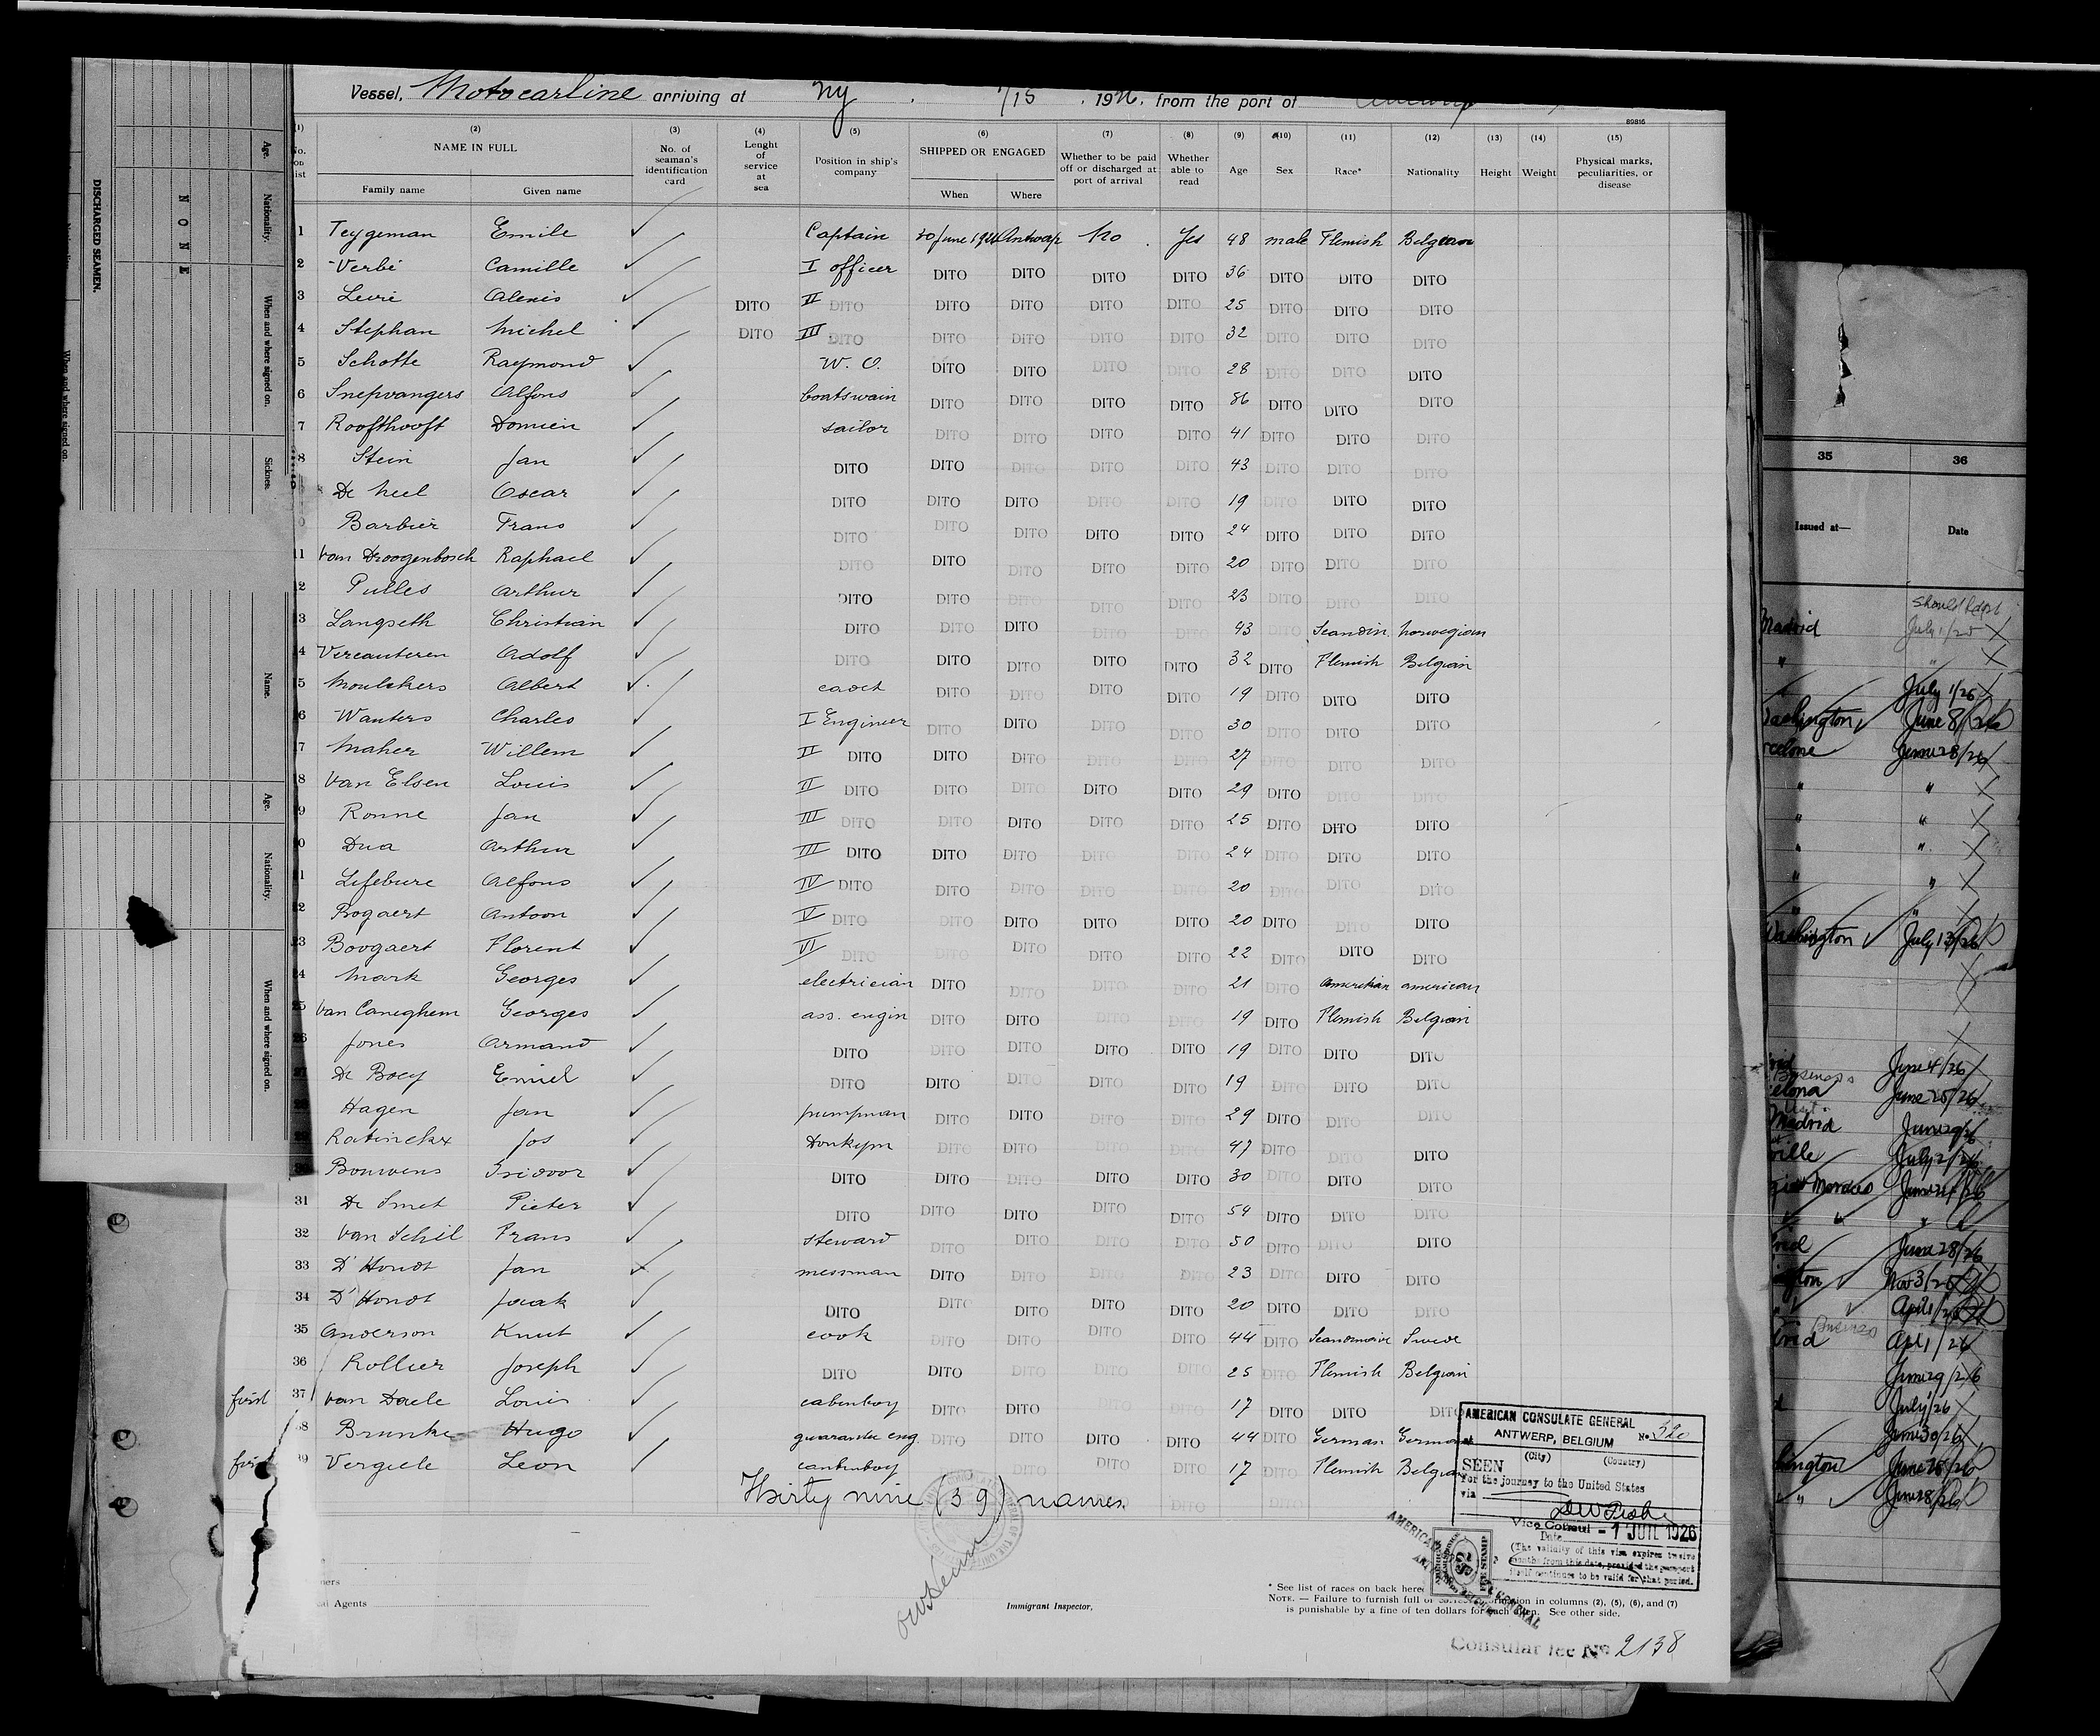 Vessel, Motocarline arriving at Ny 7/15, 1926, from the port of
89816
(1) (2) (3) (4) (5) (6) (7) (8) (9) (10) (11) (12) (13) (14) (15)
NAME IN FULL No. of seaman's identification card Lenght of service at sea Position in ship's company SHIPPED OR ENGAGED Whether to be paid off or discharged at port of arrival Whether able to read Age Sex Race* Nationality Height Weight Physical marks, peculiarities, or disease
Family name Given name When Where
1 Teygeman Emile Captain 30 June 1926 Antwerp No Yes 48 male Flemish Belgian
2 Verbé Camille I officer DITO DITO DITO DITO 36 DITO DITO DITO
3 Leurie Alexis DITO II DITO DITO DITO DITO DITO 25 DITO DITO DITO
4 Stephan Michel DITO III DITO DITO DITO DITO DITO 32 DITO DITO DITO
5 Schotte Raymond W. O. DITO DITO DITO DITO 28 DITO DITO DITO
6 Snepvangers Alfons boatswain DITO DITO DITO DITO 36 DITO DITO DITO
7 Roofthooft Domien sailor DITO DITO DITO DITO 41 DITO DITO DITO
8 Stein Jan DITO DITO DITO DITO DITO 43 DITO DITO DITO
De Neel Oscar DITO DITO DITO DITO DITO 19 DITO DITO DITO
0 Barbier Frans DITO DITO DITO DITO DITO 24 DITO DITO DITO
11 Van Droogenbosch Raphael DITO DITO DITO DITO DITO 20 DITO DITO DITO
2 Pulles Arthur DITO DITO DITO DITO DITO 23 DITO DITO DITO
3 Langseth Christian DITO DITO DITO DITO DITO 43 DITO Scandin. Norwegian
4 Vercauteren Adolf DITO DITO DITO DITO DITO 32 DITO Flemish Belgian
5 Moulckers Albert cadet DITO DITO DITO DITO 19 DITO DITO DITO
6 Wauters Charles I Engineer DITO DITO DITO DITO 30 DITO DITO DITO
7 Maher Willem II DITO DITO DITO DITO DITO 27 DITO DITO DITO
8 Van Elsen Louis II DITO DITO DITO DITO DITO 29 DITO DITO DITO
9 Ronne Jan III DITO DITO DITO DITO DITO 25 DITO DITO DITO
0 Dua Arthur III DITO DITO DITO DITO DITO 24 DITO DITO DITO
21 Lefebure Alfons IV DITO DITO DITO DITO DITO 20 DITO DITO DITO
22 Bogaert Antoon V DITO DITO DITO DITO DITO 20 DITO DITO DITO
23 Boogaert Florent VI DITO DITO DITO DITO DITO 22 DITO DITO DITO
24 Mark Georges electrician DITO DITO DITO DITO 21 DITO American american
25 Van Caneghem Georges ass. engin DITO DITO DITO DITO 19 DITO Flemish Belgian
26 Jones Armand DITO DITO DITO DITO DITO 19 DITO DITO DITO
27 De Boey Emiel DITO DITO DITO DITO DITO 19 DITO DITO DITO
28 Hagen Jan pumpman DITO DITO DITO DITO 29 DITO DITO DITO
29 Ratinckx Jos Donkym DITO DITO DITO DITO 47 DITO DITO DITO
30 Bouwens Isidoor DITO DITO DITO DITO DITO 30 DITO DITO DITO
31 De Smet Pieter DITO DITO DITO DITO DITO 54 DITO DITO DITO
32 Van Schil Frans steward DITO DITO DITO DITO 50 DITO DITO DITO
33 D'Hondt Jan messman DITO DITO DITO DITO 23 DITO DITO DITO
34 D'Hondt Jaak DITO DITO DITO DITO DITO 20 DITO DITO DITO
35 Anderson Knut cook DITO DITO DITO DITO 44 DITO Scandinavie Swede
36 Rollier Joseph DITO DITO DITO DITO DITO 25 DITO Flemish Belgian
first 37 Van Daele Louis cabinboy DITO DITO DITO DITO 17 DITO DITO DITO
38 Brunke Hugo guarantee eng. DITO DITO DITO DITO 44 DITO German German
first 39 Vergiele Leon cabinboy DITO DITO DITO DITO 17 DITO Flemish Belgian
Thirty nine (39) names.
AMERICAN CONSULATE GENERAL
ANTWERP, BELGIUM No 320
(City) (Country)
SEEN
For the journey to the United States
via
Vice Consul - 1 JUIL 1926
Date
(The validity of this visa expires twelve
months from this date, provided the passport
itself continues to be valid for that period.
Immigrant Inspector.
* See list of races on back here
NOTE. — Failure to furnish full or correct information in columns (2), (5), (6), and (7)
is punishable by a fine of ten dollars for each alien. See other side.
Consular fee No 2138
ners
al Agents
DISCHARGED SEAMEN.
NONE
Age. Nationality. When and where signed on. Sickness.
Name. Age. Nationality. When and where signed on.
When and where signed on.
35 36
Issued at— Date
Should be dpt
Madrid July 1/25
" "
July 1/26
Washington June 8/26
rcelone June 28/26
" "
" "
" "
" "
" "
Washington July 13/26
June 4/26
Business
elona June 25/26
Madrid June 29/26
ville July 2/26
June 28/26
ngton Nov 3/25
Business
drid Apl 1/26
June 29/26
July 1/26
June 30/26
hington June 25/26
" June 8/26